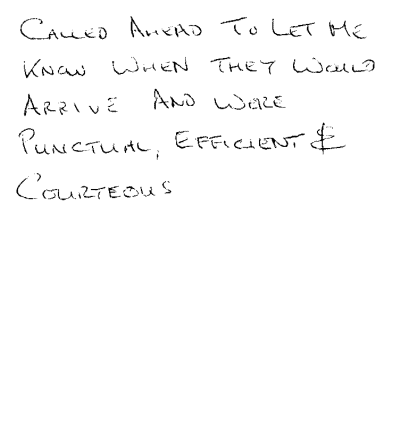 CALLED AHEAD TO LET ME
KNOW WHEN THEY WOULD
ARRIVE AND WERE
PUNCTUAL, EFFICIENT &
COURTEOUS